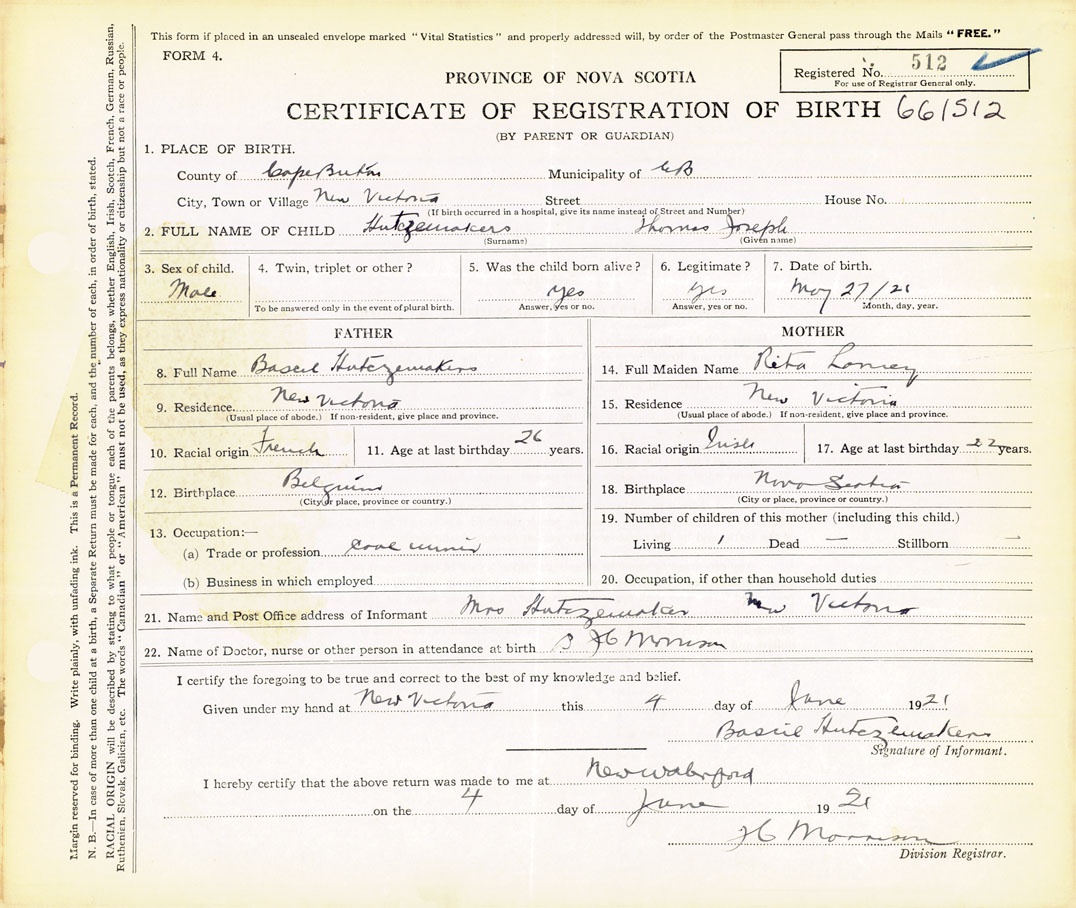 This form if placed in an unsealed envelope marked "Vital Statistics" and properly addressed will, by order of the Postmaster General pass through the Mails "FREE."
FORM 4.
Registered No. 512
For use of Registrar General only.
PROVINCE OF NOVA SCOTIA
CERTIFICATE OF REGISTRATION OF BIRTH 661512
(BY PARENT OR GUARDIAN)
1. PLACE OF BIRTH.
County of Cape Breton Municipality of CB
City, Town or Village New Victoria Street House No.
(If birth occurred in a hospital, give its name instead of Street and Number)
2. FULL NAME OF CHILD Hutczemakers Thomas Joseph
(Surname) (Given name)
3. Sex of child. Male
4. Twin, triplet or other?
To be answered only in the event of plural birth.
5. Was the child born alive? yes
Answer, yes or no.
6. Legitimate? yes
Answer, yes or no.
7. Date of birth. May 27/21
Month, day, year.
FATHER
8. Full Name Bascil Hutczemakers
9. Residence. New Victoria
(Usual place of abode.) If non-resident, give place and province.
10. Racial origin French 11. Age at last birthday 26 years.
12. Birthplace Belguim
(City or place, province or country.)
13. Occupation:—
(a) Trade or profession coal miner
(b) Business in which employed
MOTHER
14. Full Maiden Name Rita
15. Residence New Victoria
(Usual place of abode.) If non-resident, give place and province.
16. Racial origin Irish 17. Age at last birthday 22 years.
18. Birthplace Nova Scotia
(City or place, province or country.)
19. Number of children of this mother (including this child.)
Living 1 Dead — Stillborn —
20. Occupation, if other than household duties
21. Name and Post Office address of Informant Mrs Hutczemaker New Victoria
22. Name of Doctor, nurse or other person in attendance at birth JG Morrison
I certify the foregoing to be true and correct to the best of my knowledge and belief.
Given under my hand at New Victoria this 4 day of June 1921
Bascil Hutczemakers
Signature of Informant.
I hereby certify that the above return was made to me at New Waterford
on the 4 day of June 1921
JG Morrison
Division Registrar.
Margin reserved for binding. Write plainly, with unfading ink. This is a Permanent Record.
N. B.—In case of more than one child at a birth, a Separate Return must be made for each, and the number of each, in order of birth, stated.
RACIAL ORIGIN will be described by stating to what people or tongue each of the parents belongs, whether English, Irish, Scotch, French, German, Russian,
Ruthenian, Slovak, Galician, etc. The words "Canadian" or "American" must not be used, as they express nationality or citizenship but not a race or people.